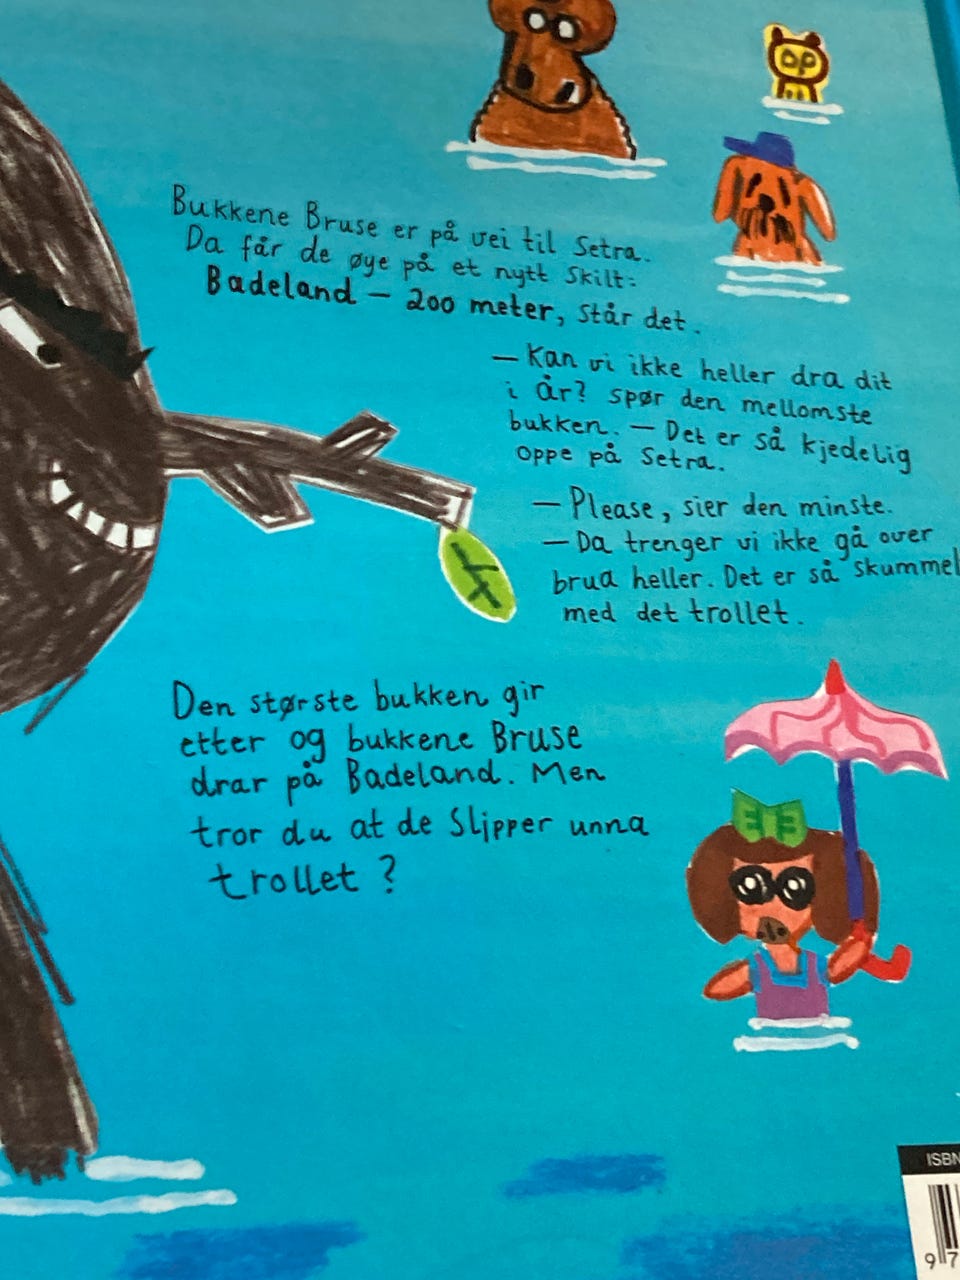 Bukkene Bruse er på vei til Setra.
Da får de øye på et nytt skilt:
Badeland – 200 meter, står det.
– Kan vi ikke heller dra dit
i år? spør den mellomste
bukken. – Det er så kjedelig
oppe på Setra.
– Please, sier den minste.
– Da trenger vi ikke gå over
brua heller. Det er så skummel
med det trollet.
Den største bukken gir
etter og bukkene Bruse
drar på Badeland. Men
tror du at de slipper unna
trollet?
ISBN
97